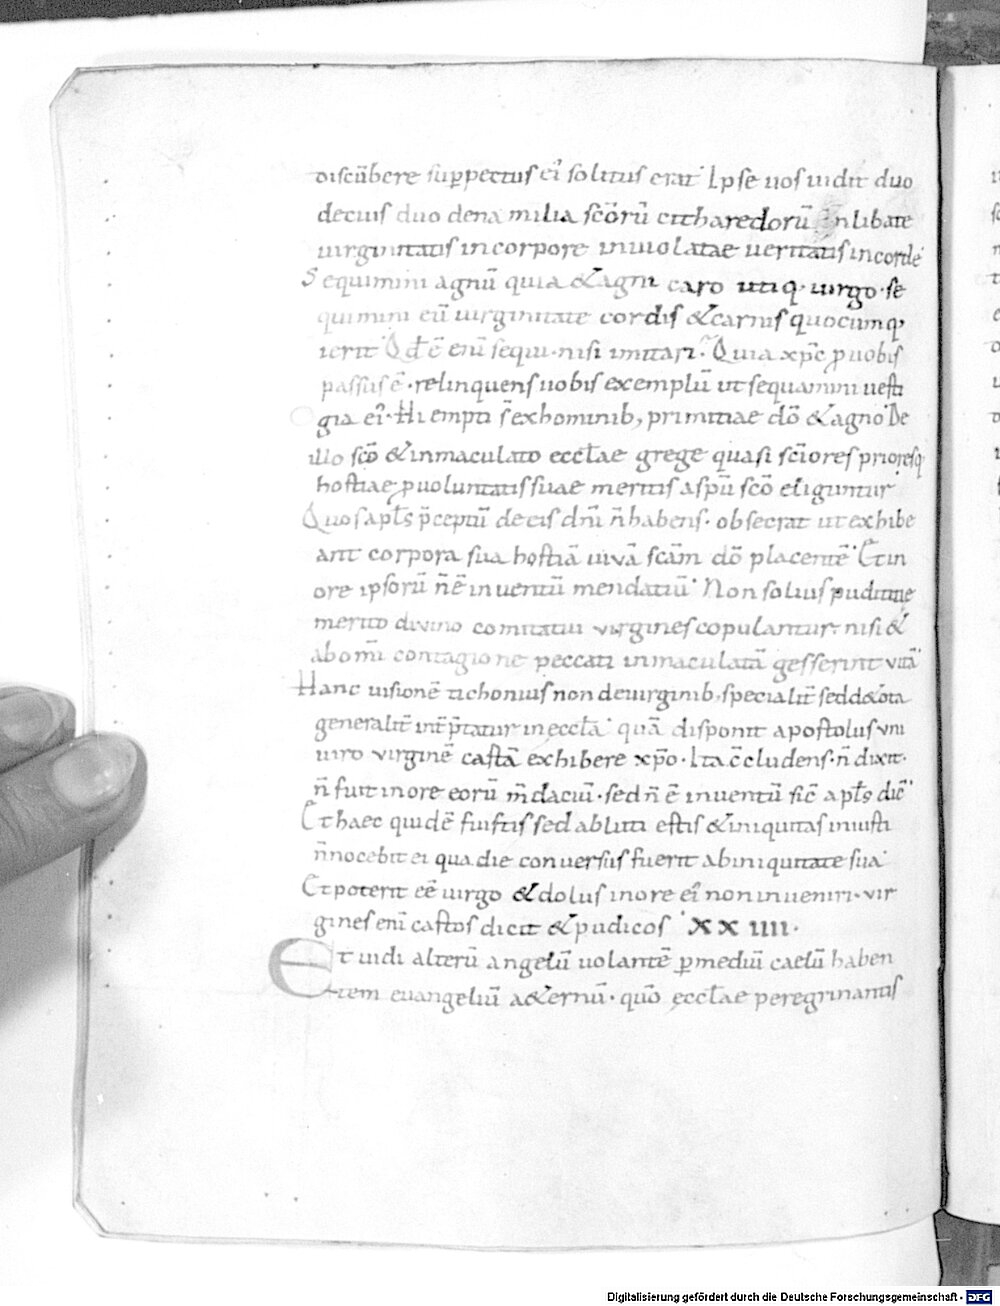 discūbere suppectus ei᾽ solitus erat᾽ Ipse uos uidit duo
decuis duo dena milia scōrū citharedorū Inlibate
uirginitatis incorpore inuiolatae ueritatis incorde᾽
Sequimini agnū quia & agni caro utiq· uirgo· se
quimini eū uirginitate cordis & carnis quocumq·
ierit᾽ Qđ ē enī sequi· nisi imitari᾽ Quia xp̄c ꝓ uobis
passus ē· relinquens uobis exemplū ut sequamini uesti
gia ei᾽· Hi empti s̄ exhominib, primitiae dō & agno᾽ De
illo scō & inmaculato eccƚae grege quasi sc̄iores prioresq
hostiae ꝓ uoluntatis suae meritis aspū scō eliguntur
Quos apƚs p̄ceptū decis dnī n̄ habens· obsecrat ut exhibe
ant corpora sua hostiā uiuā scām dō placentē᾽ Et in
ore ipsorū n̄ ē inuentū mendatiū᾽ Non solius pudititie
merito divino comitatui virgines copulantur· nisi &
ab omī contagione peccati inmaculatā gesserint vitā᾽
Hanc uisionē tichonius non deuirginib, specialit̄ sed de tota
generalit̄ int̄p̄tatur in eccƚa᾽ quā disponit apostolus vni
uiro virginē castā exhibere xpō· Ita c̄cludens· n̄ dixit·
n̄ fuit inore eorū m̄daciū· sed n̄ ē inuentū sic̄ apƚs dic̄᾽
Et haec quidē fuistis sed abluti estis & iniquitas iniusti
n̄ nocebit ei qua die conuersus fuerit ab iniquitate sua᾽
Et poterit eē uirgo & dolus inore ei᾽ non inueniri· vir
gines enī castos dicit & pudicos᾽ XX IIII·
Et uidi alterū angelū uolantē p̱ mediū caelū haben
tem euangeliū a&ernū· quō eccƚae peregrinantis
Digitalisierung gefördert durch die Deutsche Forschungsgemeinschaft - DFG